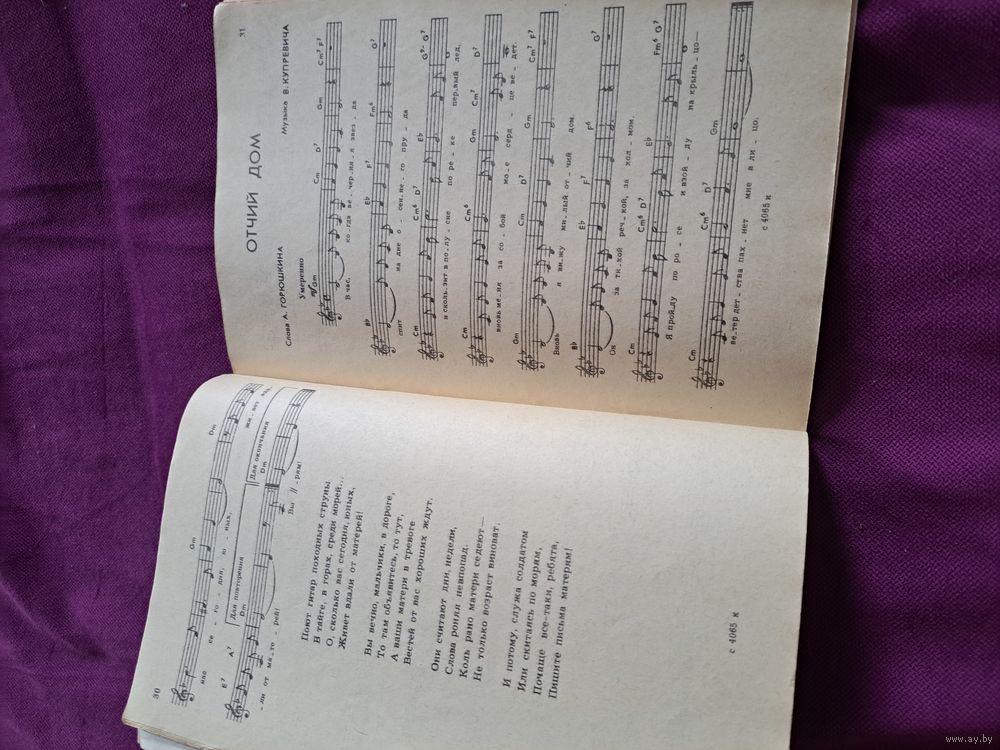 30
Gm Dm
нас се - го - дня, ю - ных, жи - вет вда-
Для повторения Для окончания
E7 A7 Dm Dm
-ли от ма - те - рей! Вы // -рям!
Поют гитар походных струны
В тайге, в горах, среди морей...
О, сколько вас сегодня, юных,
Живет вдали от матерей!
Вы вечно, мальчики, в дороге,
То там объявитесь, то тут,
А ваши матери в тревоге
Вестей от вас хороших ждут.
Они считают дни, недели,
Слова роняя невпопад.
Коль рано матери седеют—
Не только возраст виноват.
И потому, служа солдатом
Или скитаясь по морям,
Почаще все-таки, ребята,
Пишите письма матерям!
с 4065 к
31
ОТЧИЙ ДОМ
Слова А. ГОРЮШКИНА Музыка В. КУПРЕВИЧА
Умеренно
mf Gm Cm D7 Gm Cm7 F7
В час, ко-гда ве-чер-ня-я звез-да
Bb Eb F7 Fm6 G7
спит на дне о-сен-не-го пру-да
Cm Cm6 D7 Eb G9- G7
и сколь-зит в по-лу-сне по ре-ке пер-вый лед,
Cm Cm6 Gm Cm7 D7
вновь ме-ня за со-бой мо-е серд-це ве-дет.
Gm Cm D7 Gm Cm7 F7
Вновь я ви-жу ми-лый от-чий дом.
Bb Eb F7 F6 G7
Он за ти-хой реч-кой, за хол-мом.
Cm Cm6 D7 Eb Fm6 G7
Я прой-ду по ро-се и взой-ду на крыль-цо—
Cm Cm6 D7 Gm
ве-тер дет-ства пах-нет мне в ли-цо.
с 4065 к
www.ay.by